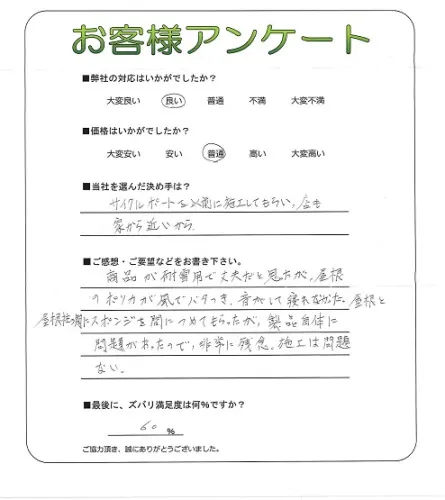 お客様アンケート
■弊社の対応はいかがでしたか?
大変良い 良い 普通 不満 大変不満
■価格はいかがでしたか?
大変安い 安い 普通 高い 大変高い
■当社を選んだ決め手は?
サイクルポートを以前に施工してもらい、店も
家から近いから
■ご感想・ご要望などをお書き下さい。
商品が耐雪用で丈夫だと思ったが、屋根
のポリカが風でバタつき、音がして寝れなかった。屋根と
屋根枠の間にスポンジを間につめてもらったが、製品自体に
問題があったので、非常に残念。施工は問題
ない。
■最後に、ズバリ満足度は何%ですか?
60 %
ご協力頂き、誠にありがとうございました。